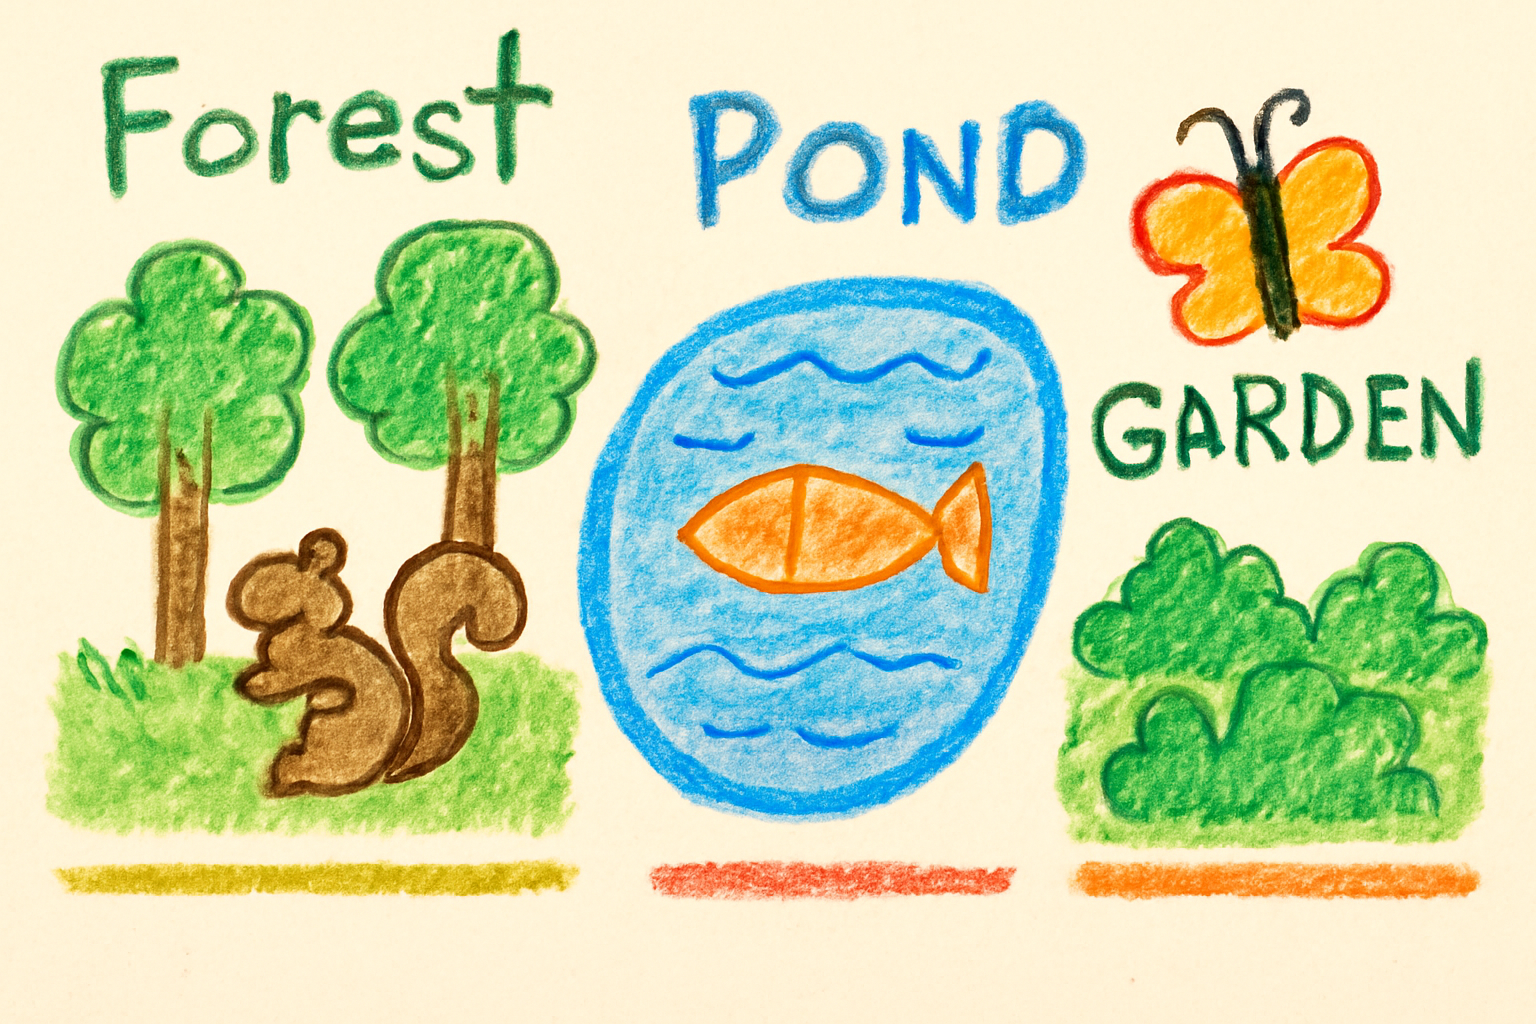 Forest
POND
GARDEN